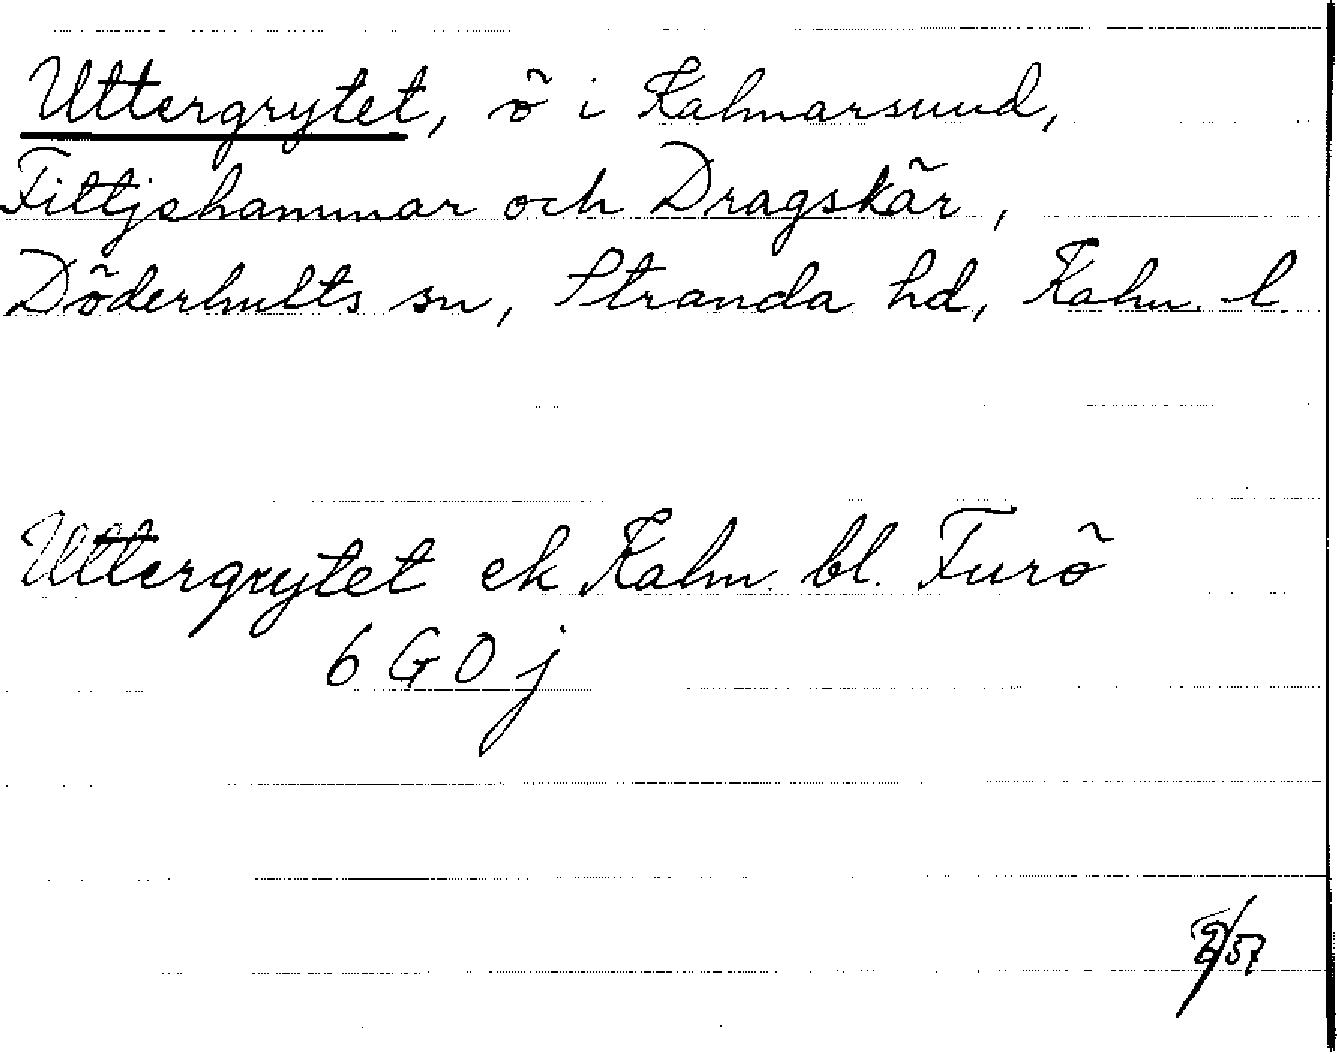 Uttergrytet, ö i Kalmarsund,
Fittjehammar och Dragskär,
Döderhults sn, Stranda hd, Kalm. l.
Uttergrytet ek Kalm. bl. Furö
6 G 0 j
/57